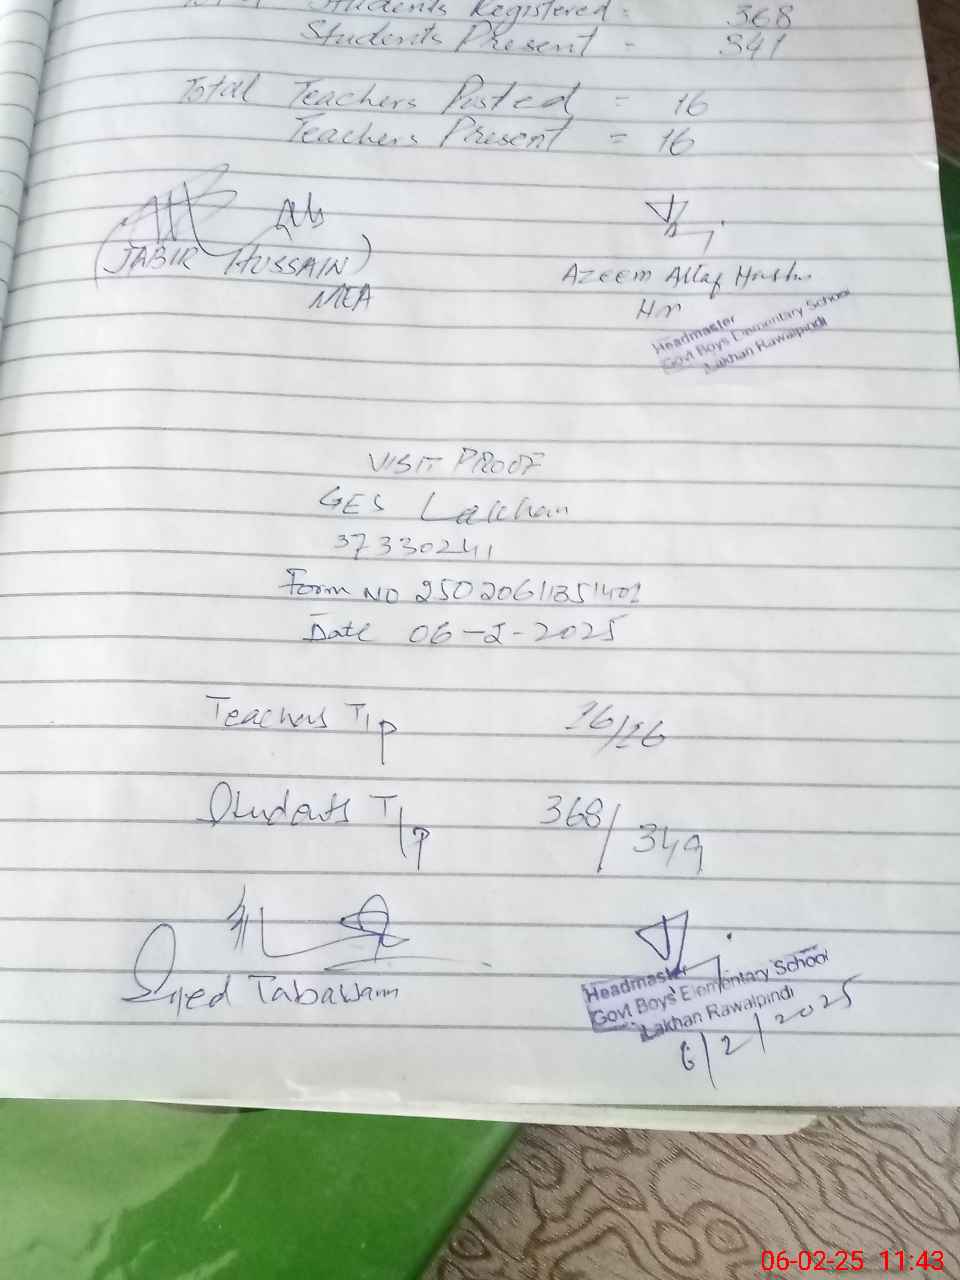 Students Registered = 368
Students Present = 341
Total Teachers Posted = 16
Teachers Present = 16
(JABIR HUSSAIN)
MEA
Azeem Altaf
Hm
Headmaster
Govt Boys Elementary School
Lakhan Rawalpindi
VISIT PROOF
GES Lakhan
37330241
Form NO
Date 06-2-2025
Teachers T/P 16/16
Students T/P 368/349
Syed
Headmaster
Govt Boys Elementary School
Lakhan Rawalpindi
6/2/2025
06-02-25 11:43